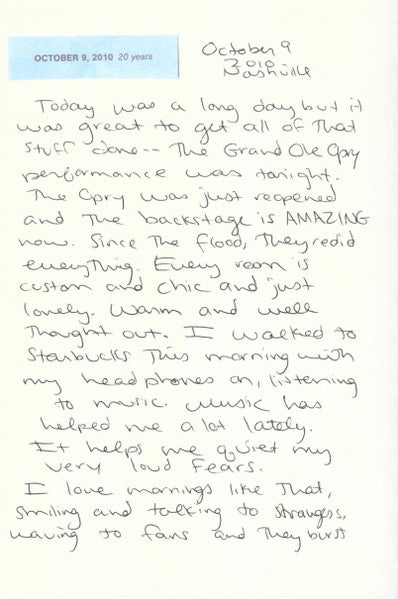 OCTOBER 9, 2010 20 years
October 9
2010
Nashville
Today was a long day but it
was great to get all of that
stuff done-- The Grand Ole Opry
performance was tonight.
The Opry was just reopened
and the backstage is AMAZING
now. Since the flood, they redid
everything. Every room is
custom and chic and just
lovely. Warm and well
thought out. I walked to
Starbucks this morning with
my headphones on, listening
to music. Music has
helped me a lot lately.
It helps me quiet my
very loud fears.
I love mornings like that,
smiling and talking to strangers,
waving to fans and they burst